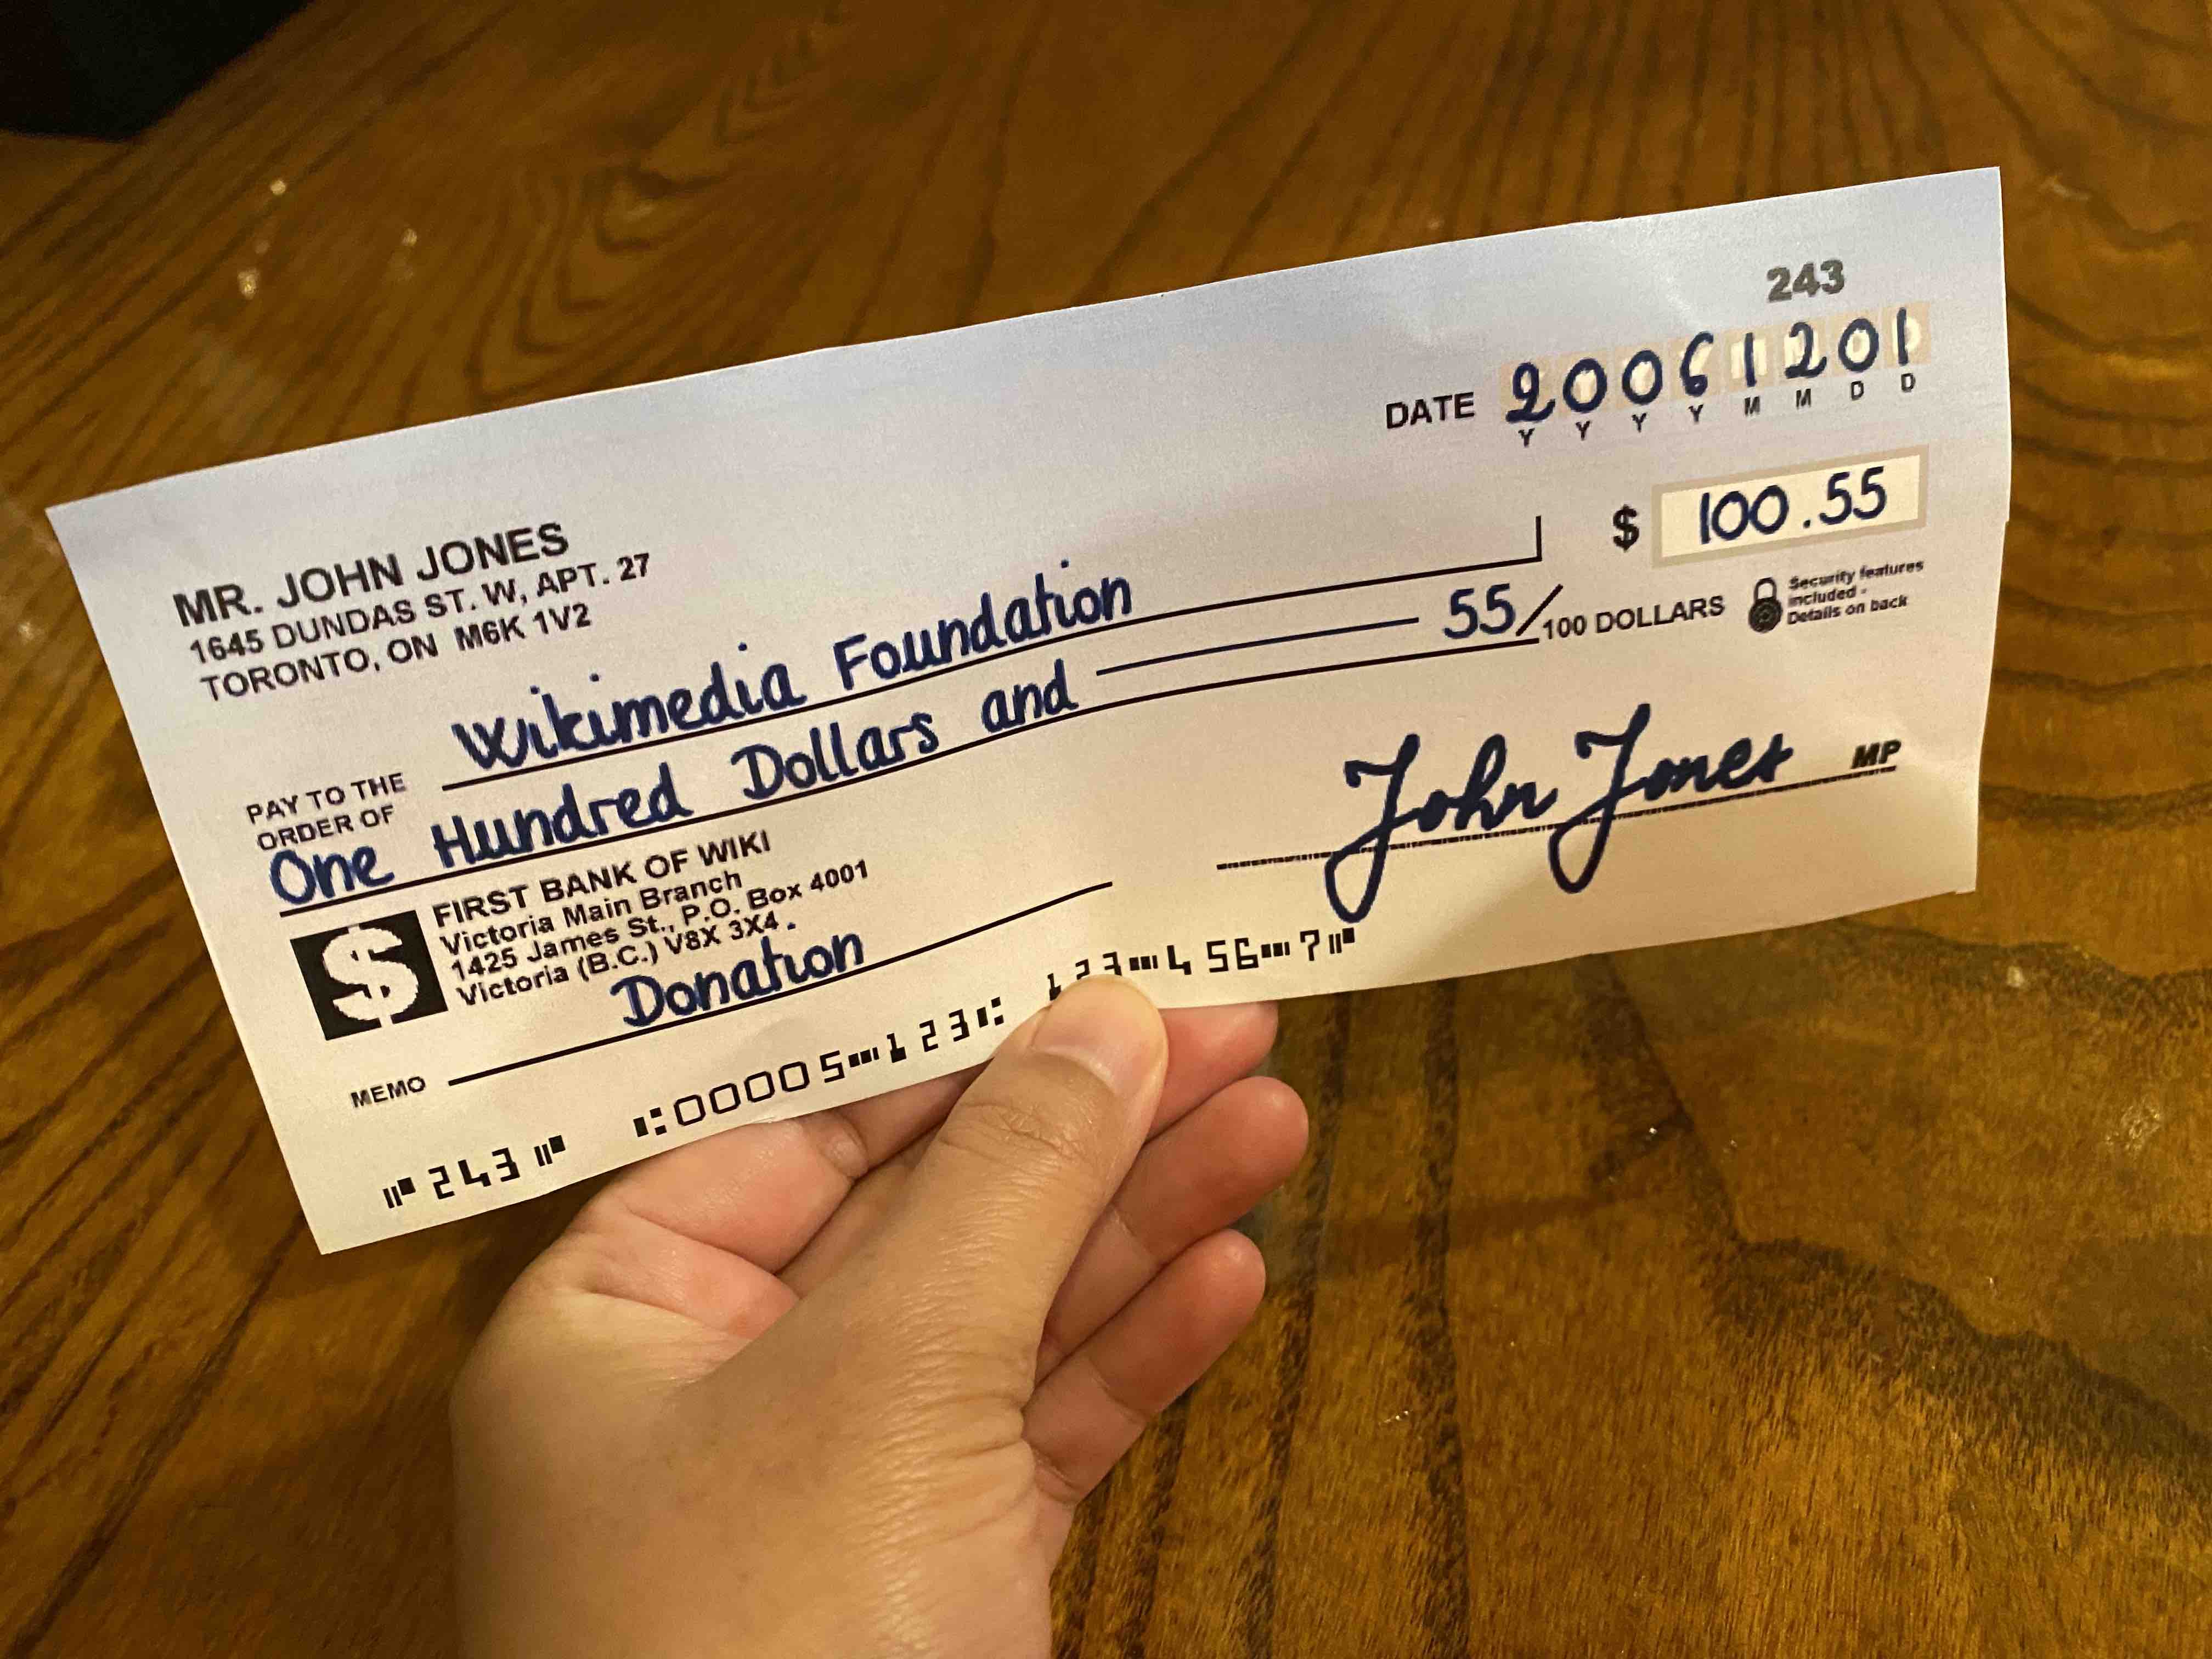 243
DATE 20061201
Y Y Y Y M M D D
MR. JOHN JONES
1645 DUNDAS ST. W, APT. 27
TORONTO, ON M6K 1V2
PAY TO THE
ORDER OF
Wikimedia Foundation
$ 100.55
One Hundred Dollars and 55/100 DOLLARS
Security features
included -
Details on back
FIRST BANK OF WIKI
Victoria Main Branch
1425 James St., P.O. Box 4001
Victoria (B.C.) V8X 3X4.
MEMO Donation
John Jones MP
⑈243⑈ ⑆00005⑉123⑆ 123⑉456⑉7⑈